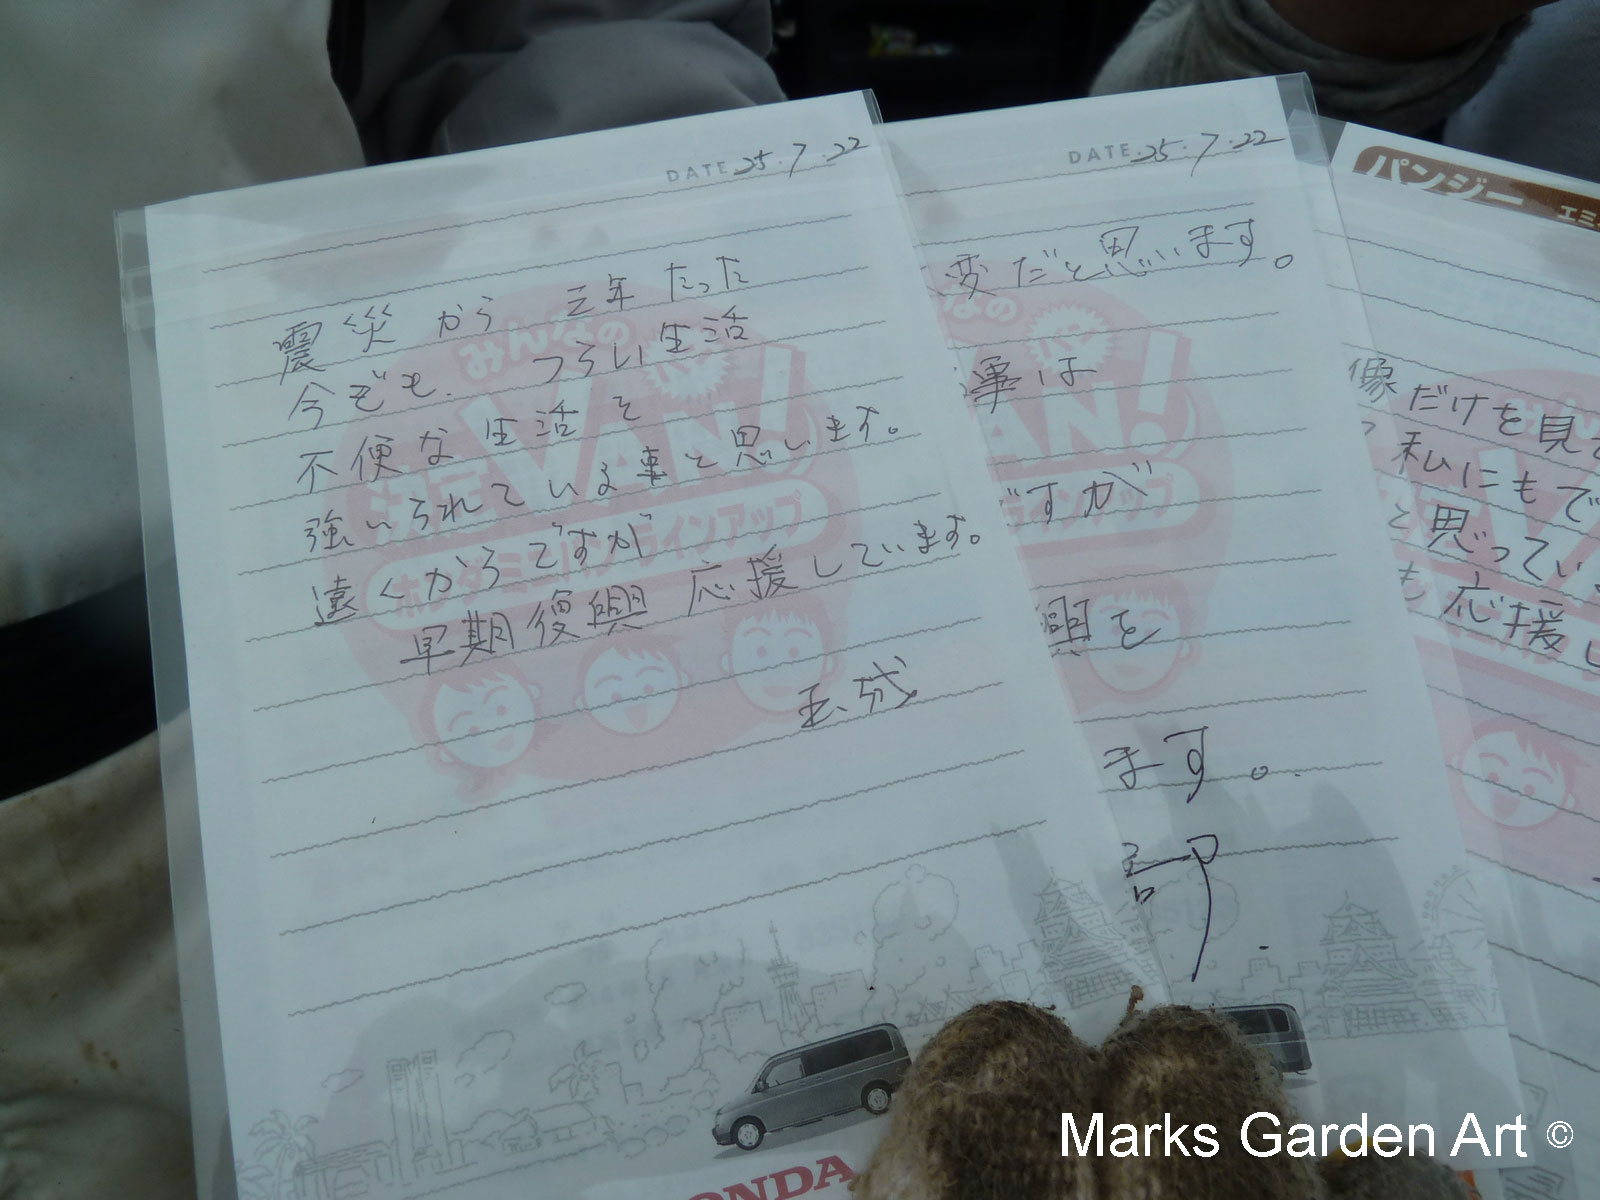 DATE 25.7.22
震災から 三年たった
今でも、つらい生活
不便な生活を
強いられている事と思います。
遠くからですが
早期復興 応援しています。
みんなの
決定VAN!
ホンダミニバンラインアップ
HONDA
DATE 25.7.22
変だと思います。
事は
ですが
興を
ます。
みんなの
VAN!
ラインアップ
パンジー
像だけを見て
私にもで
と思ってい
も応援し
Marks Garden Art ©